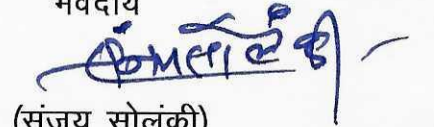 भवदीय
(संजय सोलंकी)